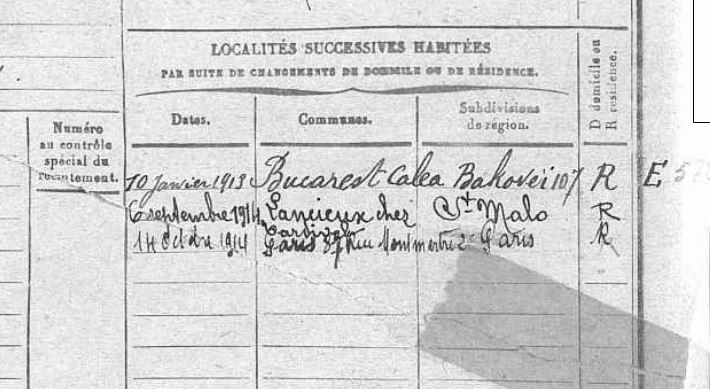 LOCALITÉS SUCCESSIVES HABITÉES
PAR SUITE DE CHANGEMENTS DE DOMICILE OU DE RÉSIDENCE.
D domicile ou
R résidence.
Numéro
au contrôle
spécial du
recrutement.
Dates.
Communes.
Subdivisions
de région.
10 Janvier 1913 Bucarest Calea Bakovei 107 R E
6 septembre 1914 Lancieux chez St Malo R
14 Octobre 1914 Paris 87 Rue Montmartre 2e Paris R